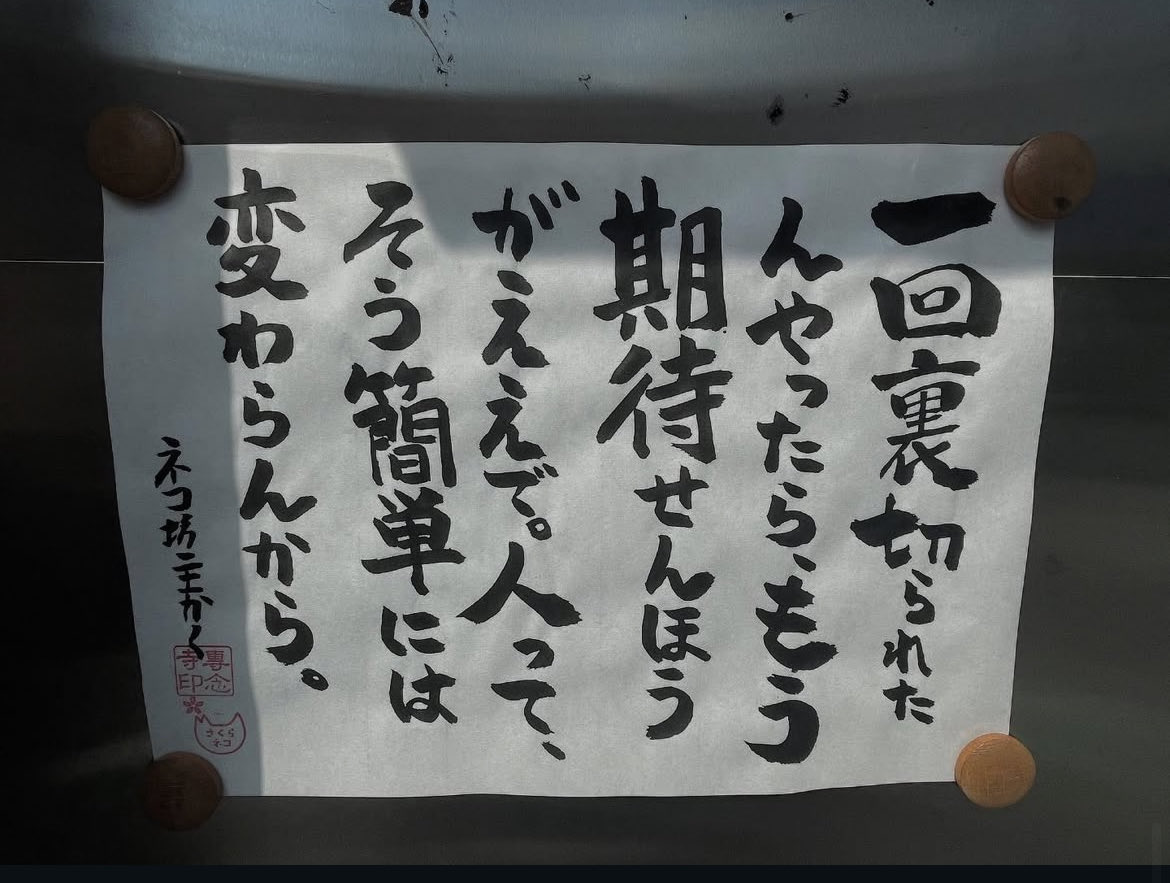 一回裏切られた
んやったら、もう
期待せんほう
がええで。人って、
そう簡単には
変わらんから。
ネコ坊主かく
專念
寺印
さくら
ネコ